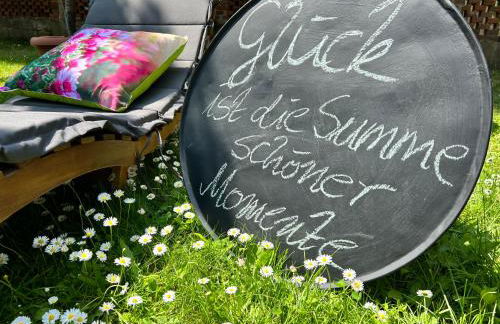 Glück
ist die Summe
schöner
Momente